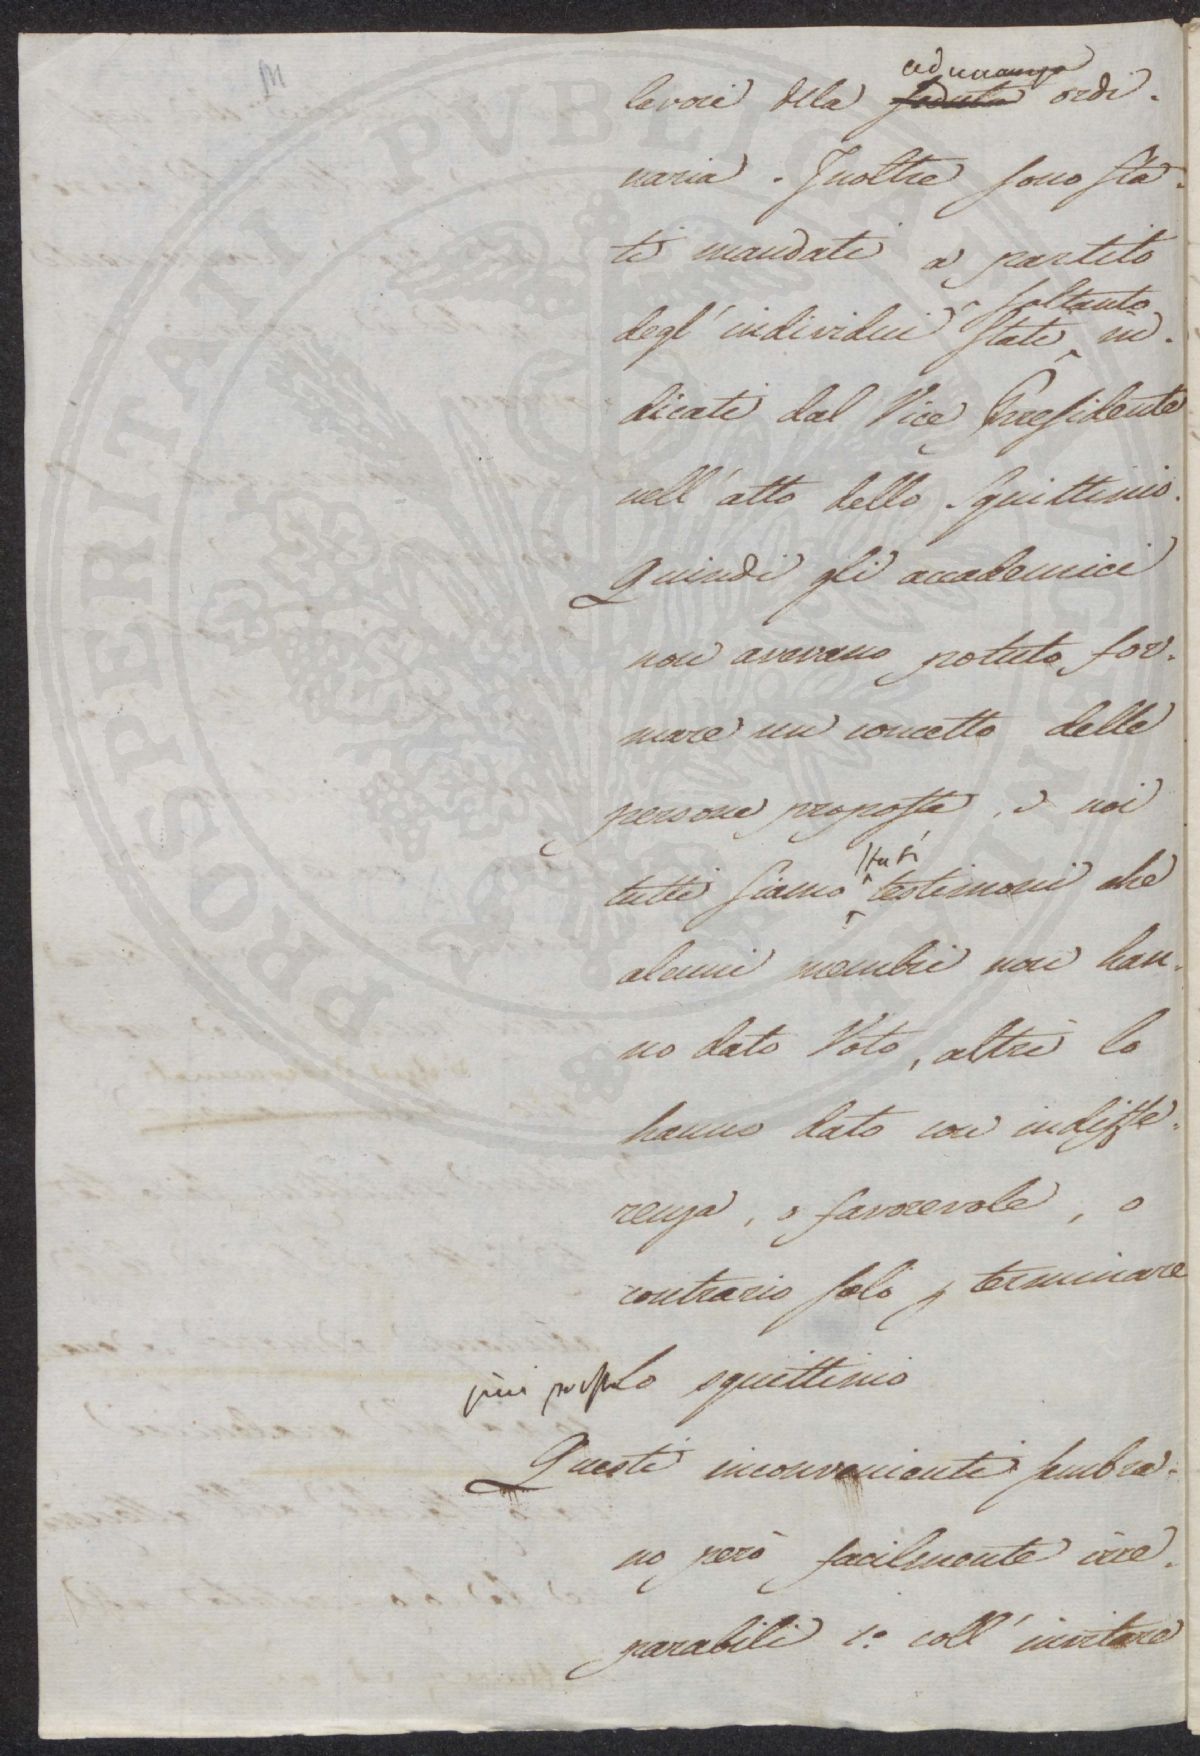 adunanza
lavori della seduta ordi-
naria. Inoltre sono sta-
ti mandati a partito
soltanto
degl' individui stati in-
dicati dal Vice Presidente
nell' atto dello squittinio.
Quindi gli accademici
non avevano potuto for-
mare un concetto delle
persone proposte, e noi
stati
tutti siamo testimoni che
alcuni membri non han-
no dato Voto, altri lo
hanno dato con indiffe-
renza, o favorevole, o
contrario solo p terminare
più presto lo squittinio
Questi inconvenienti sembra-
no però facilmente irre-
parabili 1.o coll' invitare
PROSPERITATI PVBLICAE AVGENDAE